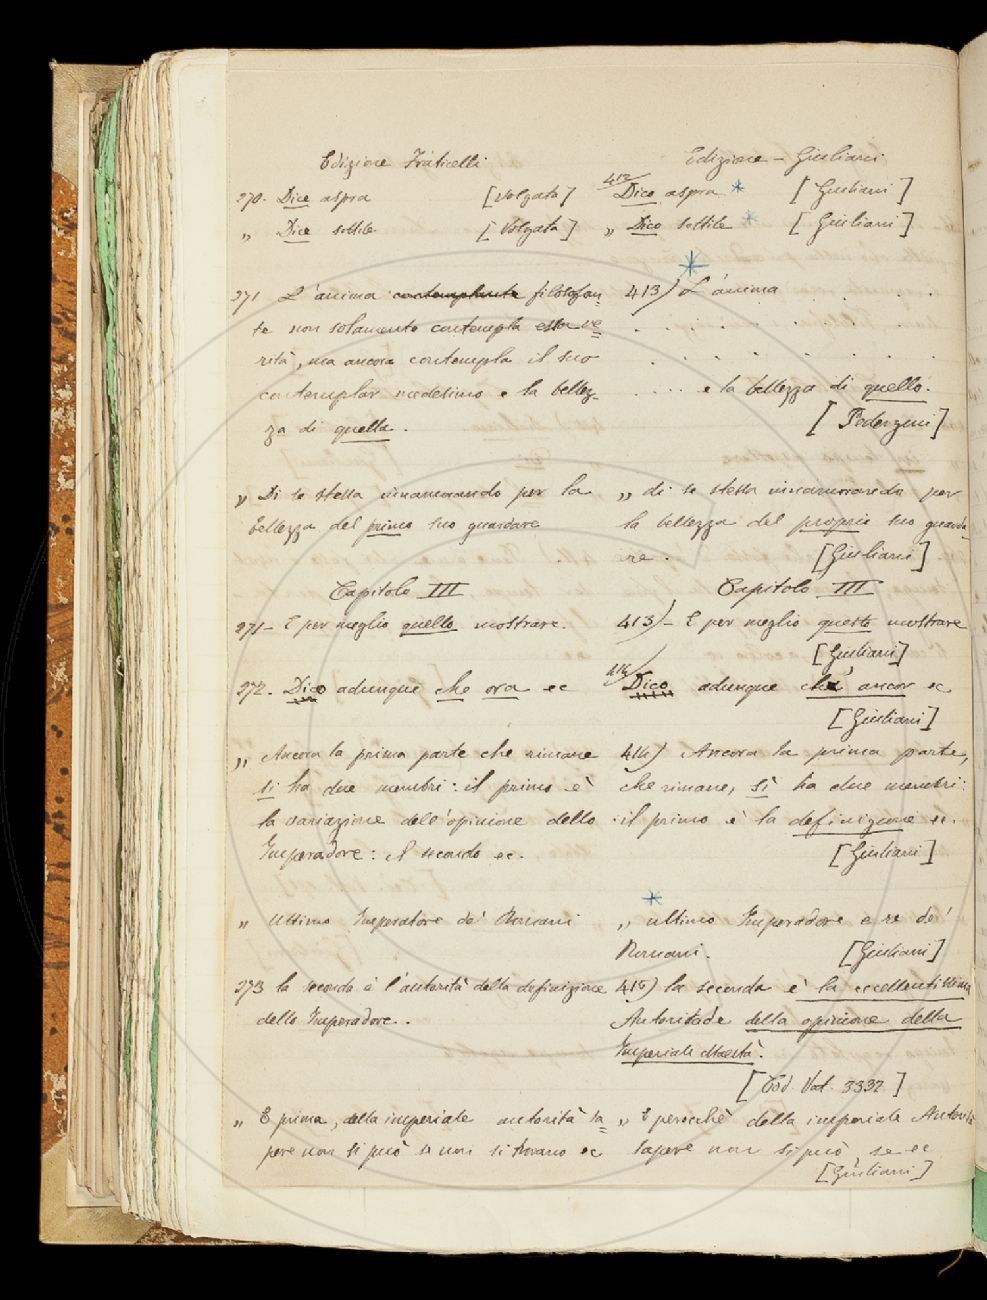 Edizione Fraticelli
270. Dice aspra [Volgata]
„ Dice sottile [Volgata]
271 L'anima contemplante filosofan-
te non solamente contempla essa ve=
rità, ma ancora contempla il suo
contemplar medesimo e la bellez-
za di quella.
„ Di se stessa innamorando per la
bellezza del primo suo guardare
Capitolo III
271- E per meglio quello mostrare.
272. Dico adunque che ora ec
„ Ancora la prima parte che rimane
si ha due membri: il primo è
la variazione dell'opinione dello
Imperadore: il secondo ec.
„ Ultimo Imperatore de' Romani
273 la seconda è l'autorità della definizione
dello Imperadore.
„ E prima, della imperiale autorità sa=
pere non si può se non si trovano ec
Edizione - Giuliani
412 Dice aspra * [Giuliani]
„ Dico sottile * [Giuliani]
*
413) L'anima . . . .
. . . . . . . .
. . . . . . . .
. . . . e la bellezza di quello.
[Pederzini]
„ di se stessa innamorando per
la bellezza del proprio suo guarda
re. [Giuliani]
Capitolo III
413)- E per meglio questo mostrare
[Giuliani]
414/ Dico adunque ch' ancor ec
[Giuliani]
414) Ancora la prima parte,
che rimane, sì ha due membri:
il primo è la definizione ec.
[Giuliani]
*
„ ultimo Imperadore e re de'
Romani. [Giuliani]
415) la seconda è la eccellentissima
Autoritade della opinione della
Imperiale Maestà.
[Cod. Vat. 3332]
„ E perocchè della imperiale Autorità
sapere non si può, se ec
[Giuliani]